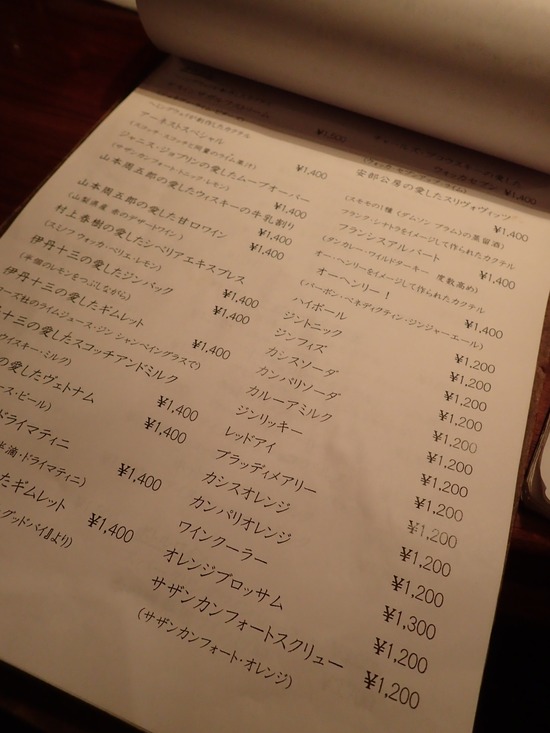 ヘミングウェイが創作したカクテル
アーネストスペシャル
(スコッチ・エクッチと同量のライム果汁)
¥1,500
ジャニス・ジョプリンの愛したムーブオーバー
(サザンカンフォート・トニック・レモン)
¥1,400
山本周五郎の愛したウィスキーの牛乳割り
¥1,400
山本周五郎の愛した甘口ワイン
(山梨県産 壺のデザートワイン)
¥1,400
村上春樹の愛したシベリアエキスプレス
(スミノフ ウォッカ・ペリエ・レモン)
¥1,400
伊丹十三の愛したジンバック
(半個のレモンをつぶしながら)
¥1,400
伊丹十三の愛したギムレット
ーズ社のライムジュース・ジン シャンペイングラスで)
¥1,400
十三の愛したスコッチアンドミルク
ウイスキー・ミルク)
¥1,400
の愛したヴェトナム
ース・ビール)
¥1,400
ドライマティニ
滴・ドライマティニ)
¥1,400
たギムレット
グッドバイ』より)
¥1,400
¥1,400
安部公房の愛したスリヴォヴィッツ
(スモモの1種(ダムソン プラム)の蒸留酒)
¥1,400
フランク・シナトラをイメージして作られたカクテル
フランシスアルバート
(タンカレー・ワイルドターキー 度数高め)
¥1,400
オー・ヘンリーをイメージして作られたカクテル
オーヘンリー!
(バーボン・ベネディクティン・ジンジャーエール)
¥1,400
ハイボール ¥1,200
ジントニック ¥1,200
ジンフィズ ¥1,200
カシスソーダ ¥1,200
カンパリソーダ ¥1,200
カルーアミルク ¥1,200
ジンリッキー ¥1,200
レッドアイ ¥1,200
ブラッディメアリー ¥1,200
カシスオレンジ ¥1,200
カンパリオレンジ
ワインクーラー ¥1,300
オレンジブロッサム ¥1,200
サザンカンフォートスクリュー ¥1,200
(サザンカンフォート・オレンジ)